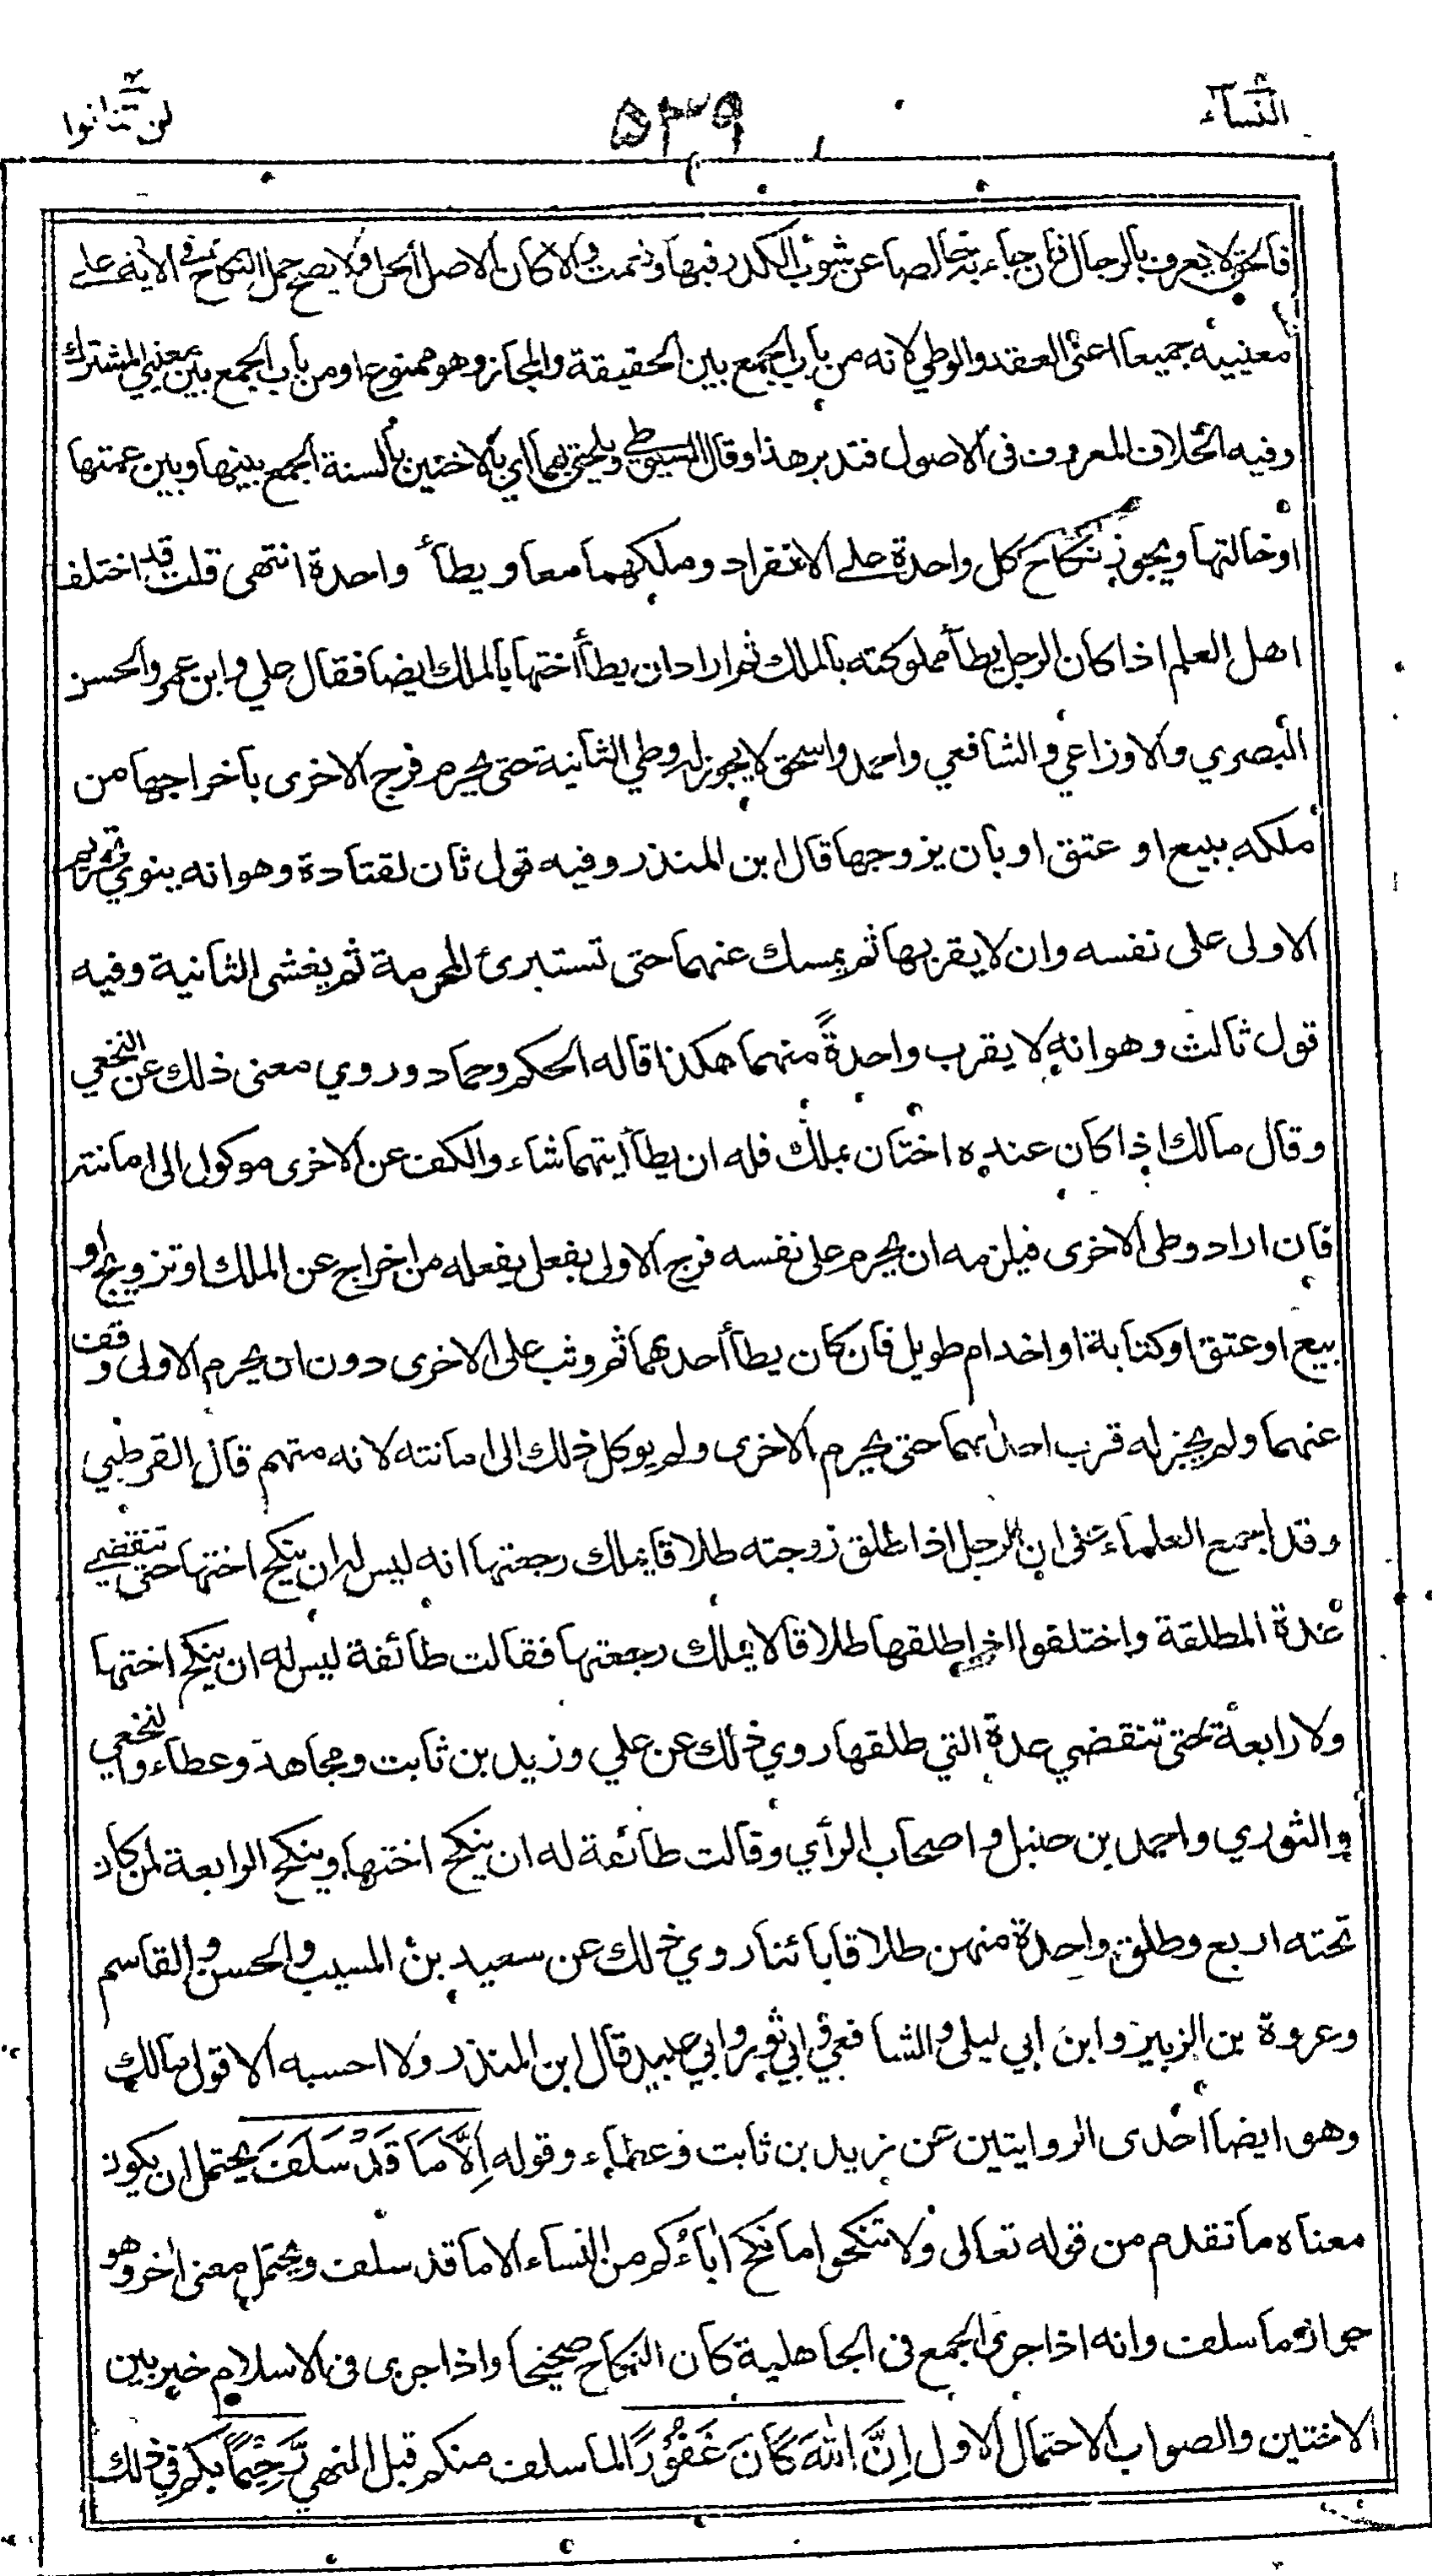 النسآء
٥٣٩
لن تنالوا
فالحق لا يعرف بالرجال فان جاء به خالصا عن شوب الكدر فبها ونعمت والا كان الاصل الحل ولا يصح حمل النكاح في الاية على
معنييه جميعا اعني العقد والوطي لانه من باب الجمع بين الحقيقة والمجاز وهو ممنوع او من باب الجمع بين معنيي المشترك
وفيه الخلاف المعروف في الاصول فتدبر هذا وقال السيوطي ويلحق بهما اي بالاختين بالسنة الجمع بينها وبين عمتها
او خالتها ويجوز نكاح كل واحدة على الانفراد وملكهما معا ويطأ واحدة انتهى قلت قد اختلف
اهل العلم اذا كان الرجل يطأ مملوكته بالملك ثم اراد ان يطأ اختها بالملك ايضا فقال علي وابن عمر والحسن
البصري والاوزاعي والشافعي واحمد واسحق لا يجوز له وطي الثانية حتى يحرم فرج الاخرى باخراجها من
ملكه ببيع او عتق او بان يزوجها قال ابن المنذر وفيه قول ثان لقتادة وهو انه ينوي تحريم
الاولى على نفسه وان لا يقربها ثم يمسك عنهما حتى تستبرئ المحرمة ثم يغشى الثانية وفيه
قول ثالث وهو انه لا يقرب واحدةً منهما هكذا قاله الحكم وحماد وروي معنى ذلك عن النخعي
وقال مالك اذا كان عنده اختان بملك فله ان يطأ ايتهما شاء والكف عن الاخرى موكول الى امانته
فان اراد وطي الاخرى فيلزمه ان يحرم على نفسه فرج الاولى بفعل يفعله من اخراج عن الملك او تزويج او
بيع او عتق او كتابة او اخدام طويل فان كان يطأ احدهما ثم وثب على الاخرى دون ان يحرم الاولى وقف
عنهما ولم يجز له قرب احداهما حتى يحرم الاخرى ولم يوكل ذلك الى امانته لانه متهم قال القرطبي
وقد اجمع العلماء على ان الرجل اذا طلق زوجته طلاقا يملك رجعتها انه ليس له ان ينكح اختها حتى تنقضي
عدة المطلقة واختلقوا اذا طلقها طلاقا لا يملك رجعتها فقالت طائفة ليس له ان ينكح اختها
ولا رابعة حتى تنقضي عدة التي طلقها روي ذلك عن علي وزيد بن ثابت ومجاهد وعطاء والنخعي
والثوري واحمد بن حنبل واصحاب الرأي وقالت طائفة له ان ينكح اختها وينكح الرابعة لمن كان
تحته اربع وطلق واحدة منهن طلاقا بائنا روي ذلك عن سعيد بن المسيب والحسن والقاسم
وعروة بن الزبير وابن ابي ليلى والشافعي وابي ثور وابي عبيد قال ابن المنذر ولا احسبه الا قول مالك
وهو ايضا احدى الروايتين عن زيد بن ثابت وعطاء وقوله اِلَّا مَا قَدْ سَلَفَ يحتمل ان يكون
معناه ما تقدم من قوله تعالى ولا تنكحوا ما نكح اٰباءكم من النساء الا ما قد سلف ويحتمل معنى اٰخر وهو
جواز ما سلف وانه اذا جرى الجمع في الجاهلية كان النكاح صحيحا واذا جرى في الاسلام خير بين
الاختين والصواب الاحتمال الاول اِنَّ اللّٰهَ كَانَ غَفُوْرًا لما سلف منكم قبل النهي رَّحِيْمًا بكم في ذلك